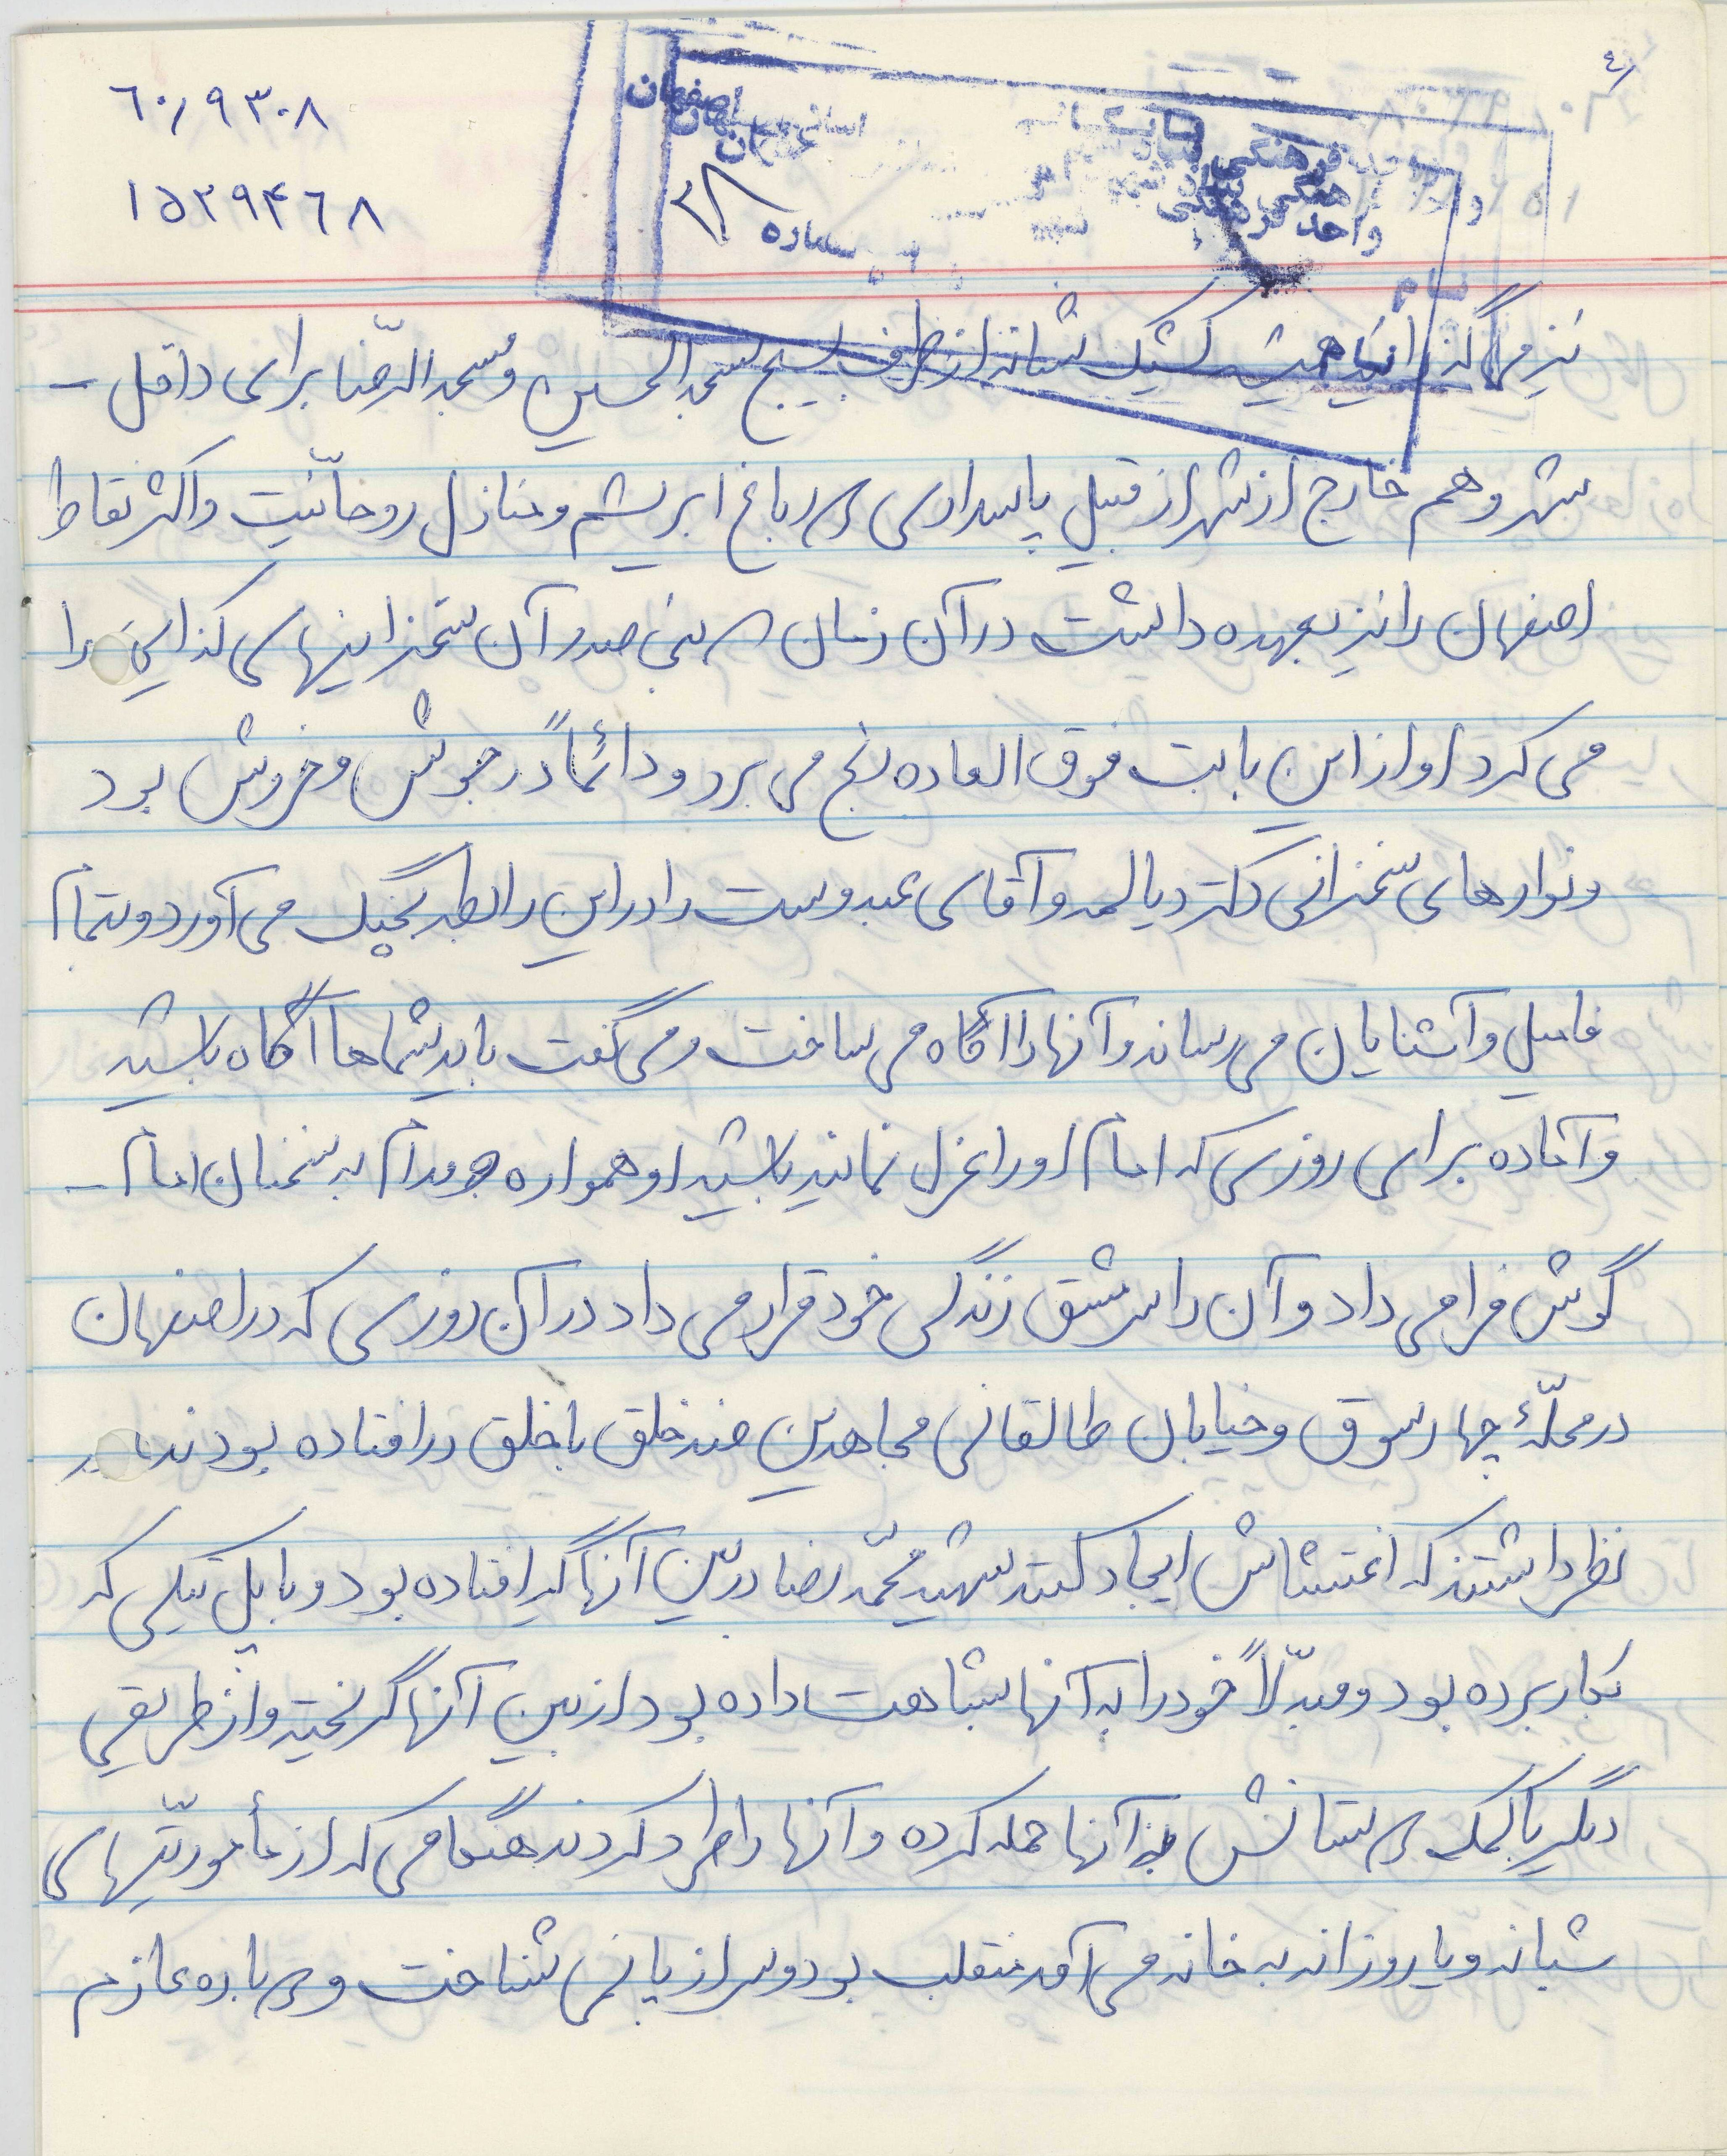 ٤/
٦٠/٩٣٠٨
١٥٣٩۴٦٨
اصفهان
واحد فرهنگی
شماره ٣٨
نیز می‌گذرانید همیشه کشیک شبانه از طرف بسیج مسجد الحسین و مسجد الرضا برای داخل –
شهر و هم خارج از شهر از قبیل پاسداری در باغ ابریشم و منازل روحانّیت و اکثر نقاط
اصفهان را نیز بعهده داشت در آن زمان که بنی صدر آن سخنرانیهای کذایی را
می کرد او از این بابت فوق العاده رنج می برد و دائماً در جوش و خروش بود
و نوارهای سخنرانی دکتر دیالمه و آقای عبدوست را در این رابطه بچنگ می آورد و بتمام
فامیل و آشنایان می رساند و آنها را آگاه می ساخت و می گفت باید شماها آگاه باشید
و آماده برای روزی که امام او را عزل نمانید باشید او همواره مدام به سخنان امام –
گوش فرا می داد و آن را سرمشق زندگی خود قرار می داد در آن روزی که در اصفهان
در محلّهٔ چهارسوق و خیابان طالقانی مجاهدین ضد خلق با خلق در افتاده بودند
نظر داشتند که اغتشاش ایجاد کنند شهید محمّد رضا در بین آنها گیر افتاده بود و با یک تیکی که
بکار برده بود و مبدّلاً خود را به آنها شباهت داده بود از بین آنها گریخته و از طریقی
دیگر با کمک دوستانش به آنها حمله کرده و آنها را طرد کردند هنگامی که از مأموریّتهای
شبانه و یا روزانه به خانه می آمد منقلب بود و سر از پا نمی شناخت و دوباره عازم